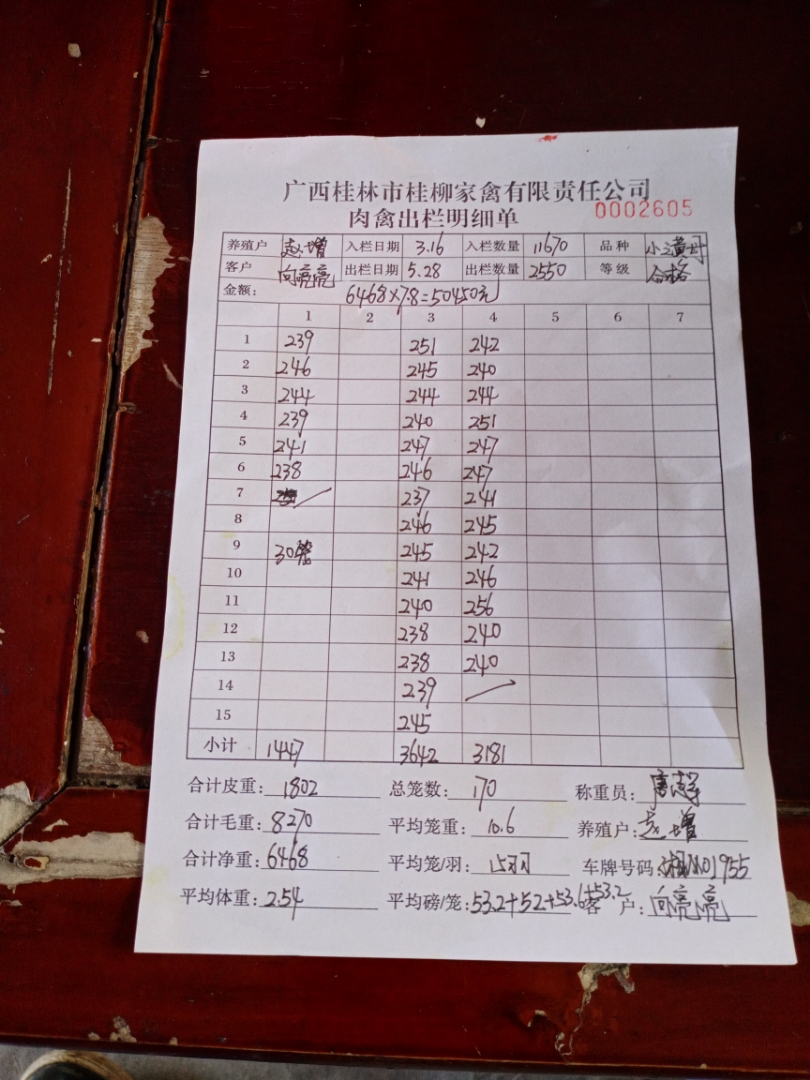 广西桂林市桂柳家禽有限责任公司
肉禽出栏明细单 0002605
养殖户 赵增 入栏日期 3.16 入栏数量 11670 品种 小黄母
客户 向亮亮 出栏日期 5.28 出栏数量 2550 等级 合格
金额: 6468×7.8=50450元
1 2 3 4 5 6 7
1 239 251 242
2 246 245 240
3 244 244 244
4 239 240 251
5 241 247 247
6 238 246 247
7 237 241
8 246 245
9 30笼 245 242
10 241 246
11 240 256
12 238 240
13 238 240
14 239
15 245
小计 1447 3642 3181
合计皮重: 1802 总笼数: 170 称重员:
合计毛重: 8270 平均笼重: 10.6 养殖户: 赵增
合计净重: 6468 平均笼/羽: 15羽 车牌号码: 湘M01955
平均体重: 2.54 平均磅/笼: 53.2+52+53.6+53.2 客户: 向亮亮